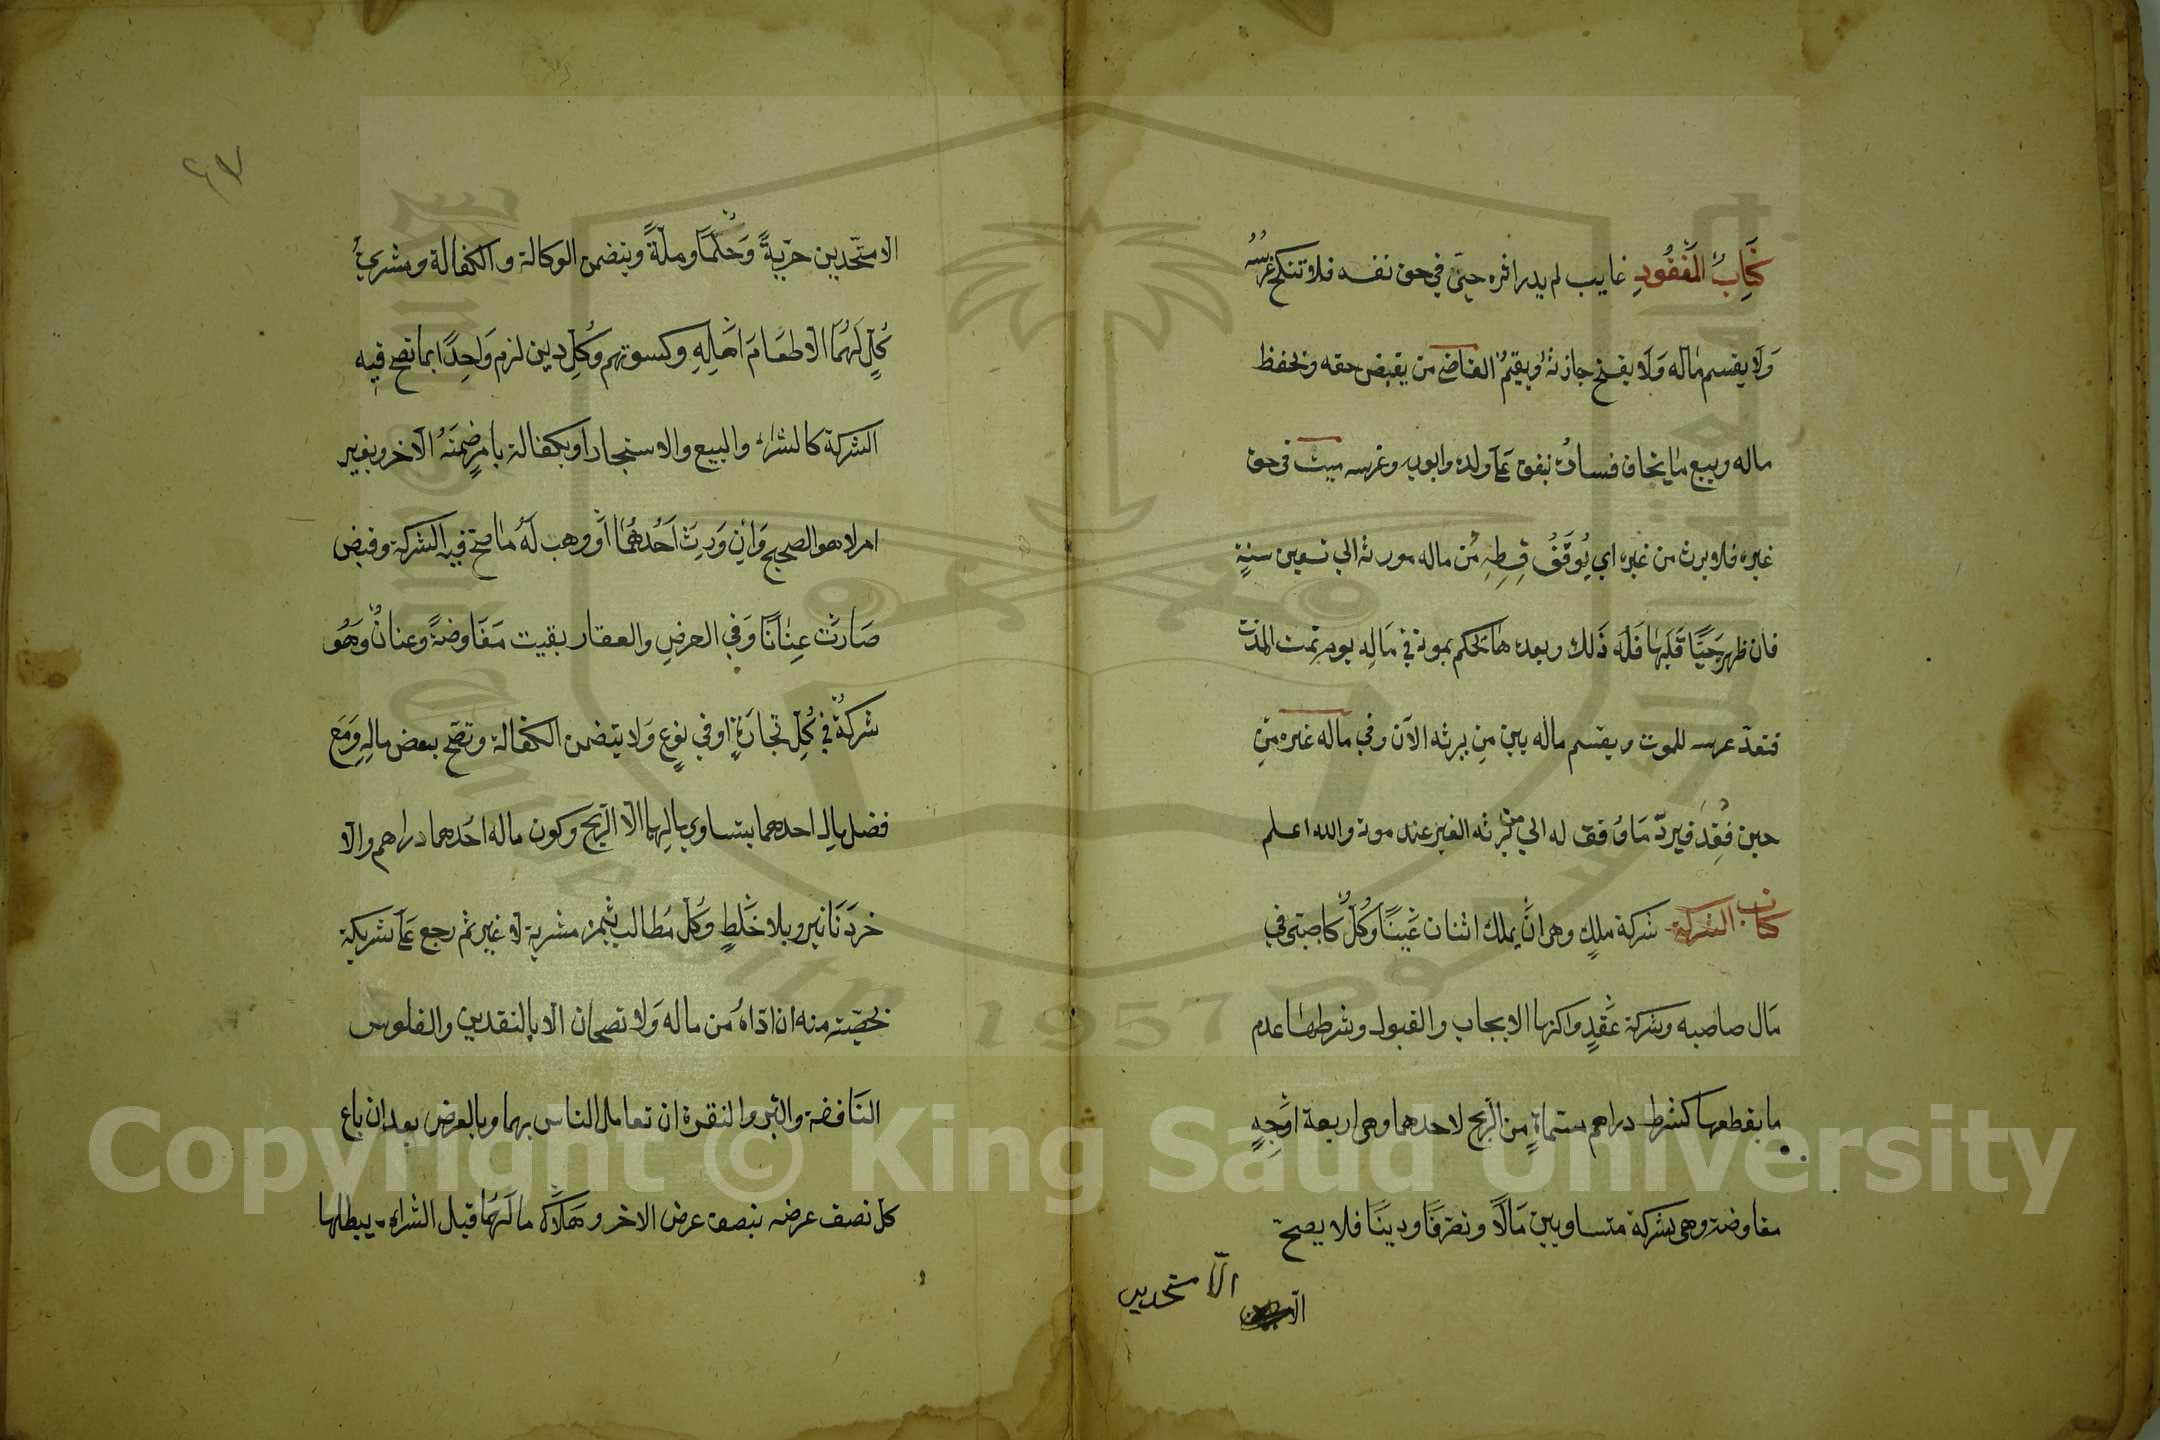 كِتَابُ الْمَفْقُودِ غايب لم يدر اثره حيّ في حق نفسه فلا تنكح عرسُهُ
وَلَا يقسم مٰاله وَلَا يفسخ اجازتهُ ويقيمُ القاضي من يقبض حقه ويحفظ
ماله ويبيع مٰا يخاف فسادهُ ينفق عَلَى ولده وابويه وعرسه ميت في حق
غيره فلا يرث من غيره اي يُوقَفُ قِسطِهِ مُن ماله مورثه الي تسعين سنةٍ
فان ظهر حَيًّا قَبلَهٰا فَلَه ذَلك وبعدهٰا يحكم بموته في مَالِه يوم تمت المدّت
فتعدّ عرسه للموت ويقسم مٰاله بين مِن يرثه الآن وفي ماله غيره مِن
حين فُقِدَ فيردّ مَا وُقف له الي من يرثه الغير عند موته والله اعلم
كتاب الشركة شركة ملكٍ وهى انْ يملك اثنان عَينًا وَكُلٌ كاجنبي في
مَال صاحبه وشركة عَقدٍ واركنها الايجاب والقبول وشرطهٰا عدم
ما يقطعهٰا كشرط دراهم مسماةٍ من الربح لاحدهما وهى اربعة اوْجِهٍ
مفاوضة وهى شركة متساويين مَالاً وتصرفًا ودينًا فلا يصح
الّا متحدين
٦٧
الا متحّدين حرّيةً وَحُلُمًا وملّةً ويتضمن الوكالة والكفالة ومشريُّ
كُلٍ لَهُمَا الا طعَامَ اهْلِهِ وكسوتهم وَكُل دين لزم وَاحِدًا بما تصح فيه
الشركة كالشراء والبيع والاستيجار او بكفالة بامرٍ ضمنَهُ الآخر وبغير
امر لا هو الصحيح وَاِن وَرِثَ اَحَدُهُمٰا اَو وهب لَهُ مٰا صحّ فيه الشركة وقبض
صَارتْ عِنَانًا وَفي العرضِ والعقار بقيت مَفَاوضةً وعنانٌ وَهُو
شركةٌ في كُلِ تجَارَةٍ او في نوعٍ وَلا يتضمن الكفالة وتصحّ ببعض مالِهِ وَمَعَ
فضل مال احدهما بتساوي ماليهما الّا الرّبحَ وكون ماله احُدهما دراهم والا
خر دَنَانير وبلا خَلطٍ وَكُلٌ مُطالب بثمن مشريه لا غير ثم رجع عَلَى شريكه
بحصّته منه ان ادّاهُ مُن ماله وَلا تصحان الّا بالنقدين والفلوس
النَافقة والتبر والنقرة ان تعامل الناس بهما وبالعرض بعد ان باع
كل نصف عرضه بنصف عرض الاخر وهَلاَكُ مالَهُمٰا قبل الشراء يبطلهٰا
Copyright © King Saud University
1957